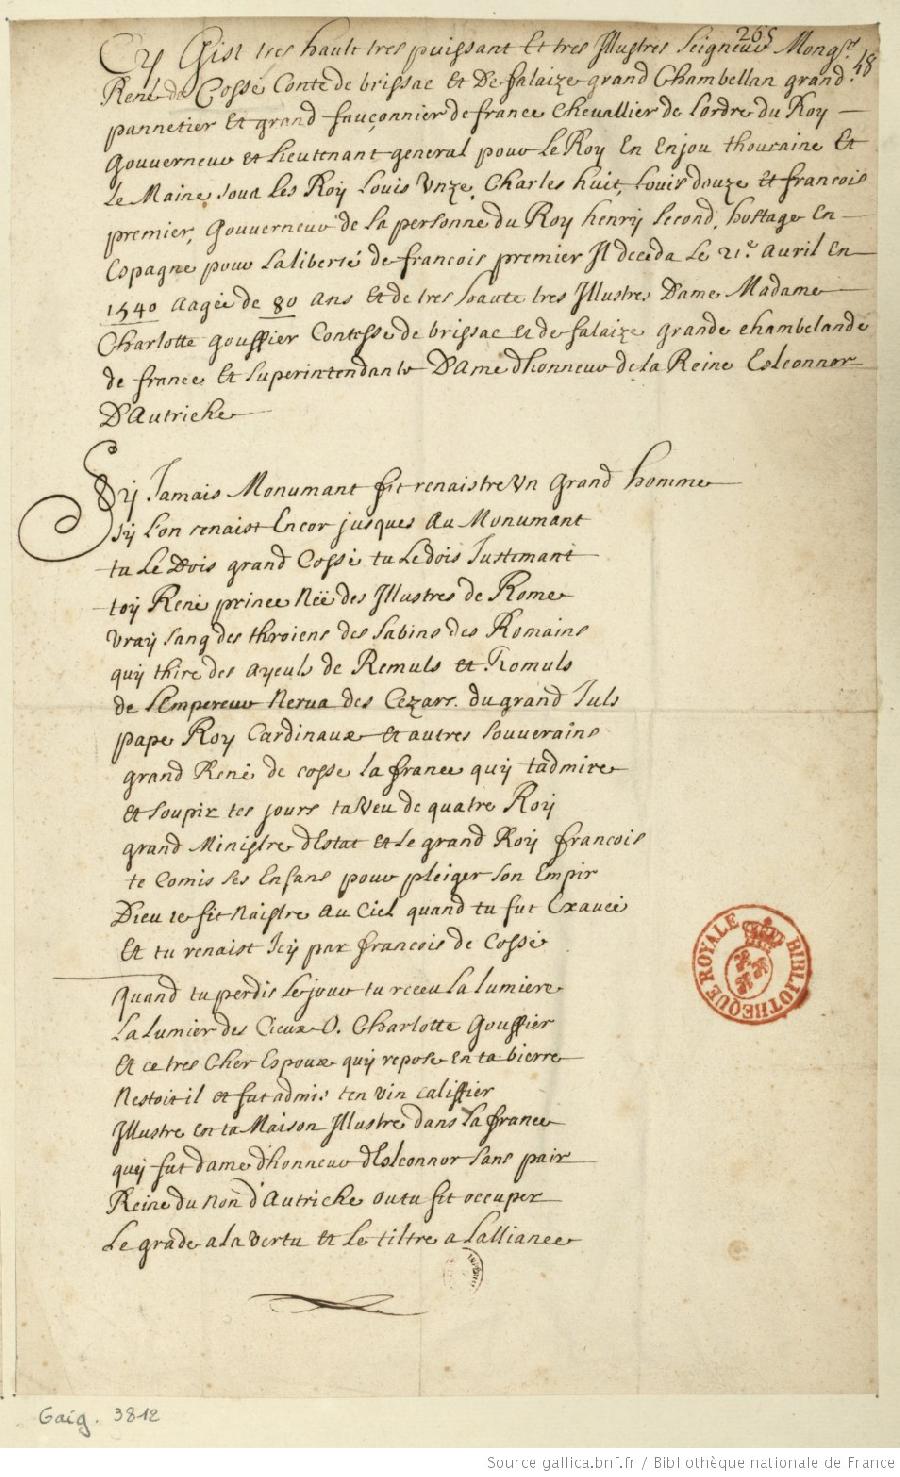 265
48
Cy Gist tres hault tres puissant Et tres Illustres Seigneur Mongsr
René de Cossé Conte de brissac et De falaize grand Chambellan grand
pannetier Et grand fauconnier de france Chevallier de Lordre du Roy
Gouverneur et Lieutenant general pour Le Roy En Enjou thouraine Et
Le Maine soua Les Roy Louis Unze, Charles huit, Louis douze et francois
premier, Gouverneur de la personne du Roy henry second, hostage En
Espagne pour La liberté de francois premier Il deceda Le 21e. Avril En
1540 aagée de 80 Ans Et de tres haute tres Illustres Dame Madame
Charlotte gouffier Contesse de brissac et de falaize grande chambelande
de france Et superintendante D'Ame d'honneur de la Reine Esleonnor
D'Autriche
Sy Jamais Monumant fit renaistre Un grand homme
sy Lon renaist Encor jusques au Monumant
tu Le Dois grand Cossé tu Le dois Justemant
toy René prince Néé des Illustres de Rome
Vray sang des throiens des Sabins des Romains
quy thire des ayeuls de Remuls et Romuls
de L'Empereur Nerva des Cezarr. du grand Juls
pape Roy Cardinaux et autres souverains
grand René de cosse la france quy t'admire
et soupir tes jours ta veu de quatre Roy
grand Ministre d'Estat et Le grand Roy francois
te Comis ses Enfans pour pleiger son Empir
Dieu te fit Naistre au Ciel quand tu fut Exaucé
Et tu renaist Icy par francois de Cossé
Quand tu perdis Le jour tu receu La lumiere
La lumier des Cieux O. Charlotte Gouffier
Et ce tres Cher Espoux quy repose En ta bierre
Nestoit il et fut admis ten vin califfier
Illustre en ta Maison Illustre dans La france
quy fut dame d'honneur d'Esleonnor sans pair
Reine du Non d'Autriche ou tu fit occuper
Le grade a la vertu et Le tiltre a L'alliance
BIBLIOTHEQUE ROYALE
Gaig. 3812
Source gallica.bnf.fr / Bibliothèque nationale de France